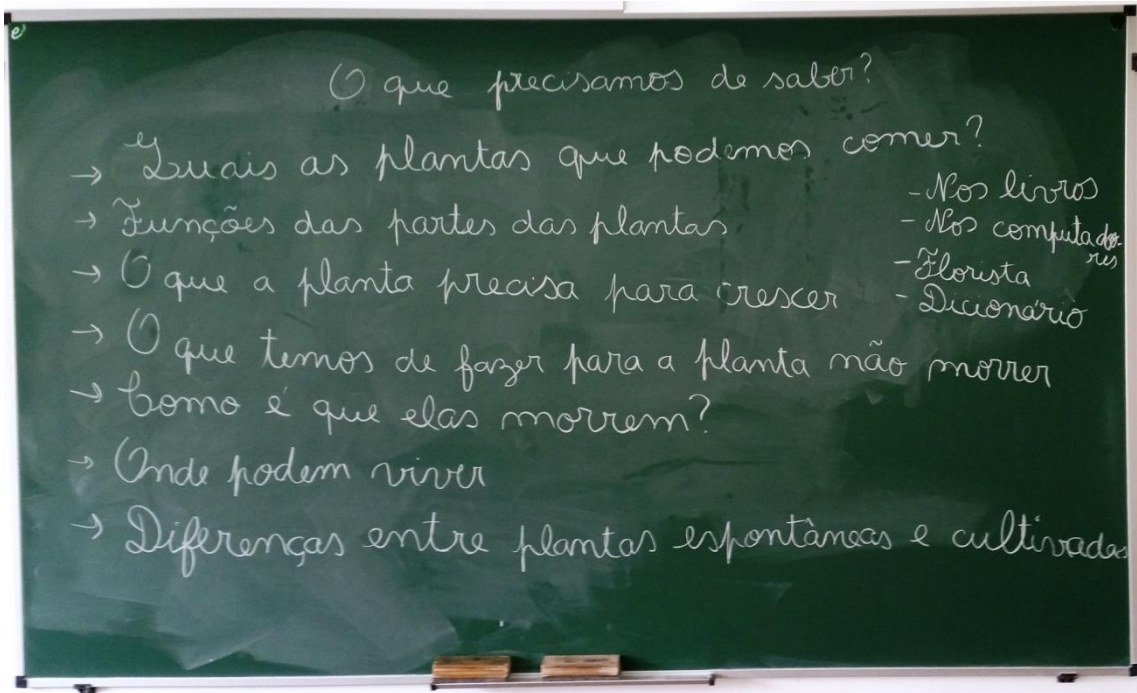 e
O que precisamos de saber?
→ Quais as plantas que podemos comer?
→ Funções das partes das plantas
→ O que a planta precisa para crescer
→ O que temos de fazer para a planta não morrer
→ Como é que elas morrem?
→ Onde podem viver
→ Diferenças entre plantas espontâneas e cultivadas
- Nos livros
- Nos computado-
res
- Florista
- Dicionário